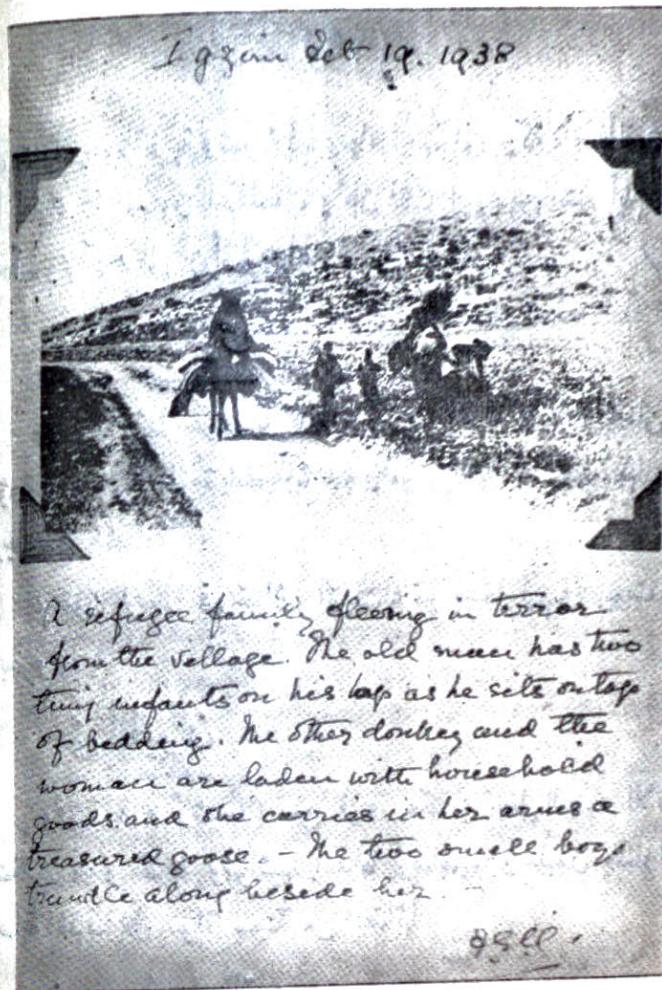 Igzim Oct 19. 1938
A refugee family fleeing in terror
from the village. The old man has two
tiny infants on his lap as he sits on top
of bedding. The other donkey and the
woman are laden with household
goods and she carries in her arms a
treasured goose. – The two small boys
trundle along beside her.